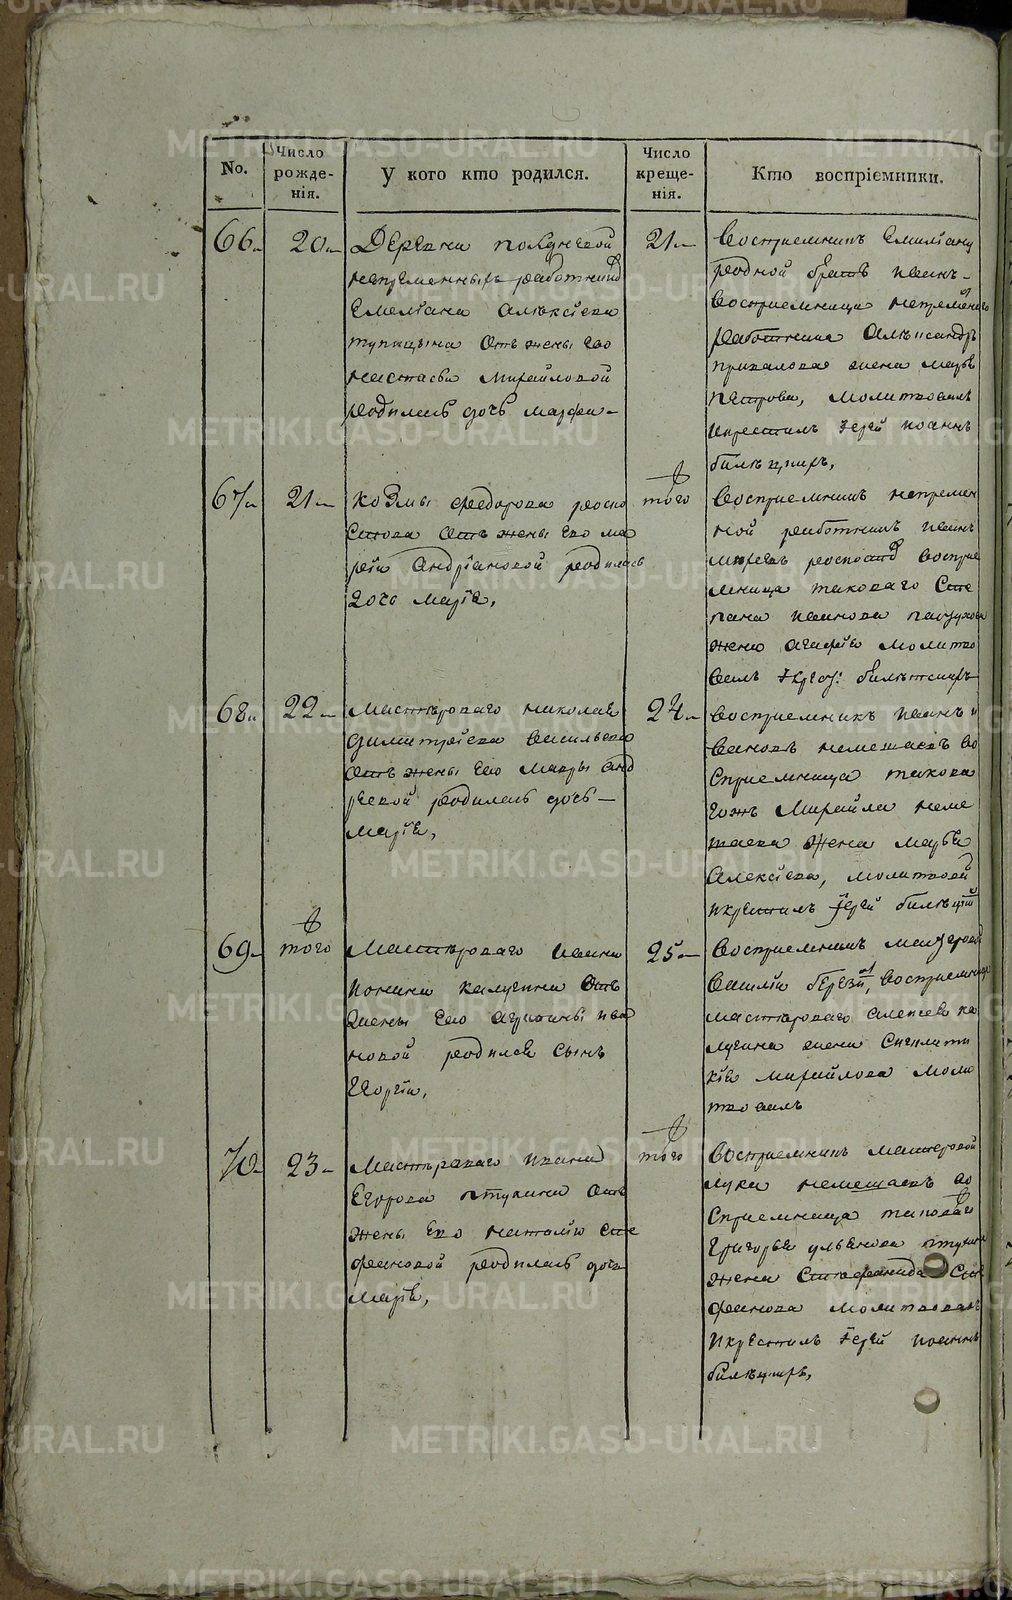 No.
Число рожде- нія.
У кого кто родился.
Число креще- нія.
Кто воспріемники.
66
20
Деревни полдневой
непременныхъ работникъ
Емелiана Алексiева
тупицына отъ жены его
настасьи михайловой
родилась дочь марфа
21
восприемникъ Емилiану
родной братъ иванъ
восприемница непременнаго
работника Александръ
привалова жена марья
петрова, молитвовалъ
икрестилъ Iерей иоаннъ
67
21
Козмы федорова
отъ жены его ма
рiи Андрiановой родилась
дочь Марiя,
того
восприемникъ непремен
ной работникъ иванъ
восприе
мница таковаго Сте
пана иванова
жена агафiя молитво
валъ
68
22
Мастероваго николая
димитрiева васильева
отъ жены его мавры анд
реевой родилась дочь
Марiя,
24
восприемникъ иванъ и
вановъ немешаевъ во
сприемница такова
гожъ Михайла неме
шаева жена марья
Алексiева, молитвовалъ
икрестилъ Iерей
69
того
Мастероваго ивана
калугина отъ
жены его агрипины ива
новой родился сынъ
Егоргiи,
25
восприемникъ мастеровой
василiй восприемница
мастероваго алексея ка
лугина жена Сиклити
кiя михайлова моли
твовалъ
70
23
Мастероваго ивана
Егорова птухина отъ
жены Его наталiи сте
фановой родилась дочь
марiя,
того
восприемникъ мастеровой
лука немешаевъ во
сприемница таковаго
Григорья ульянова птухина
жена Стефанида Сте
фанова молитвовалъ
икрестилъ Iерей иоаннъ
METRIKI.GASO-URAL.RU